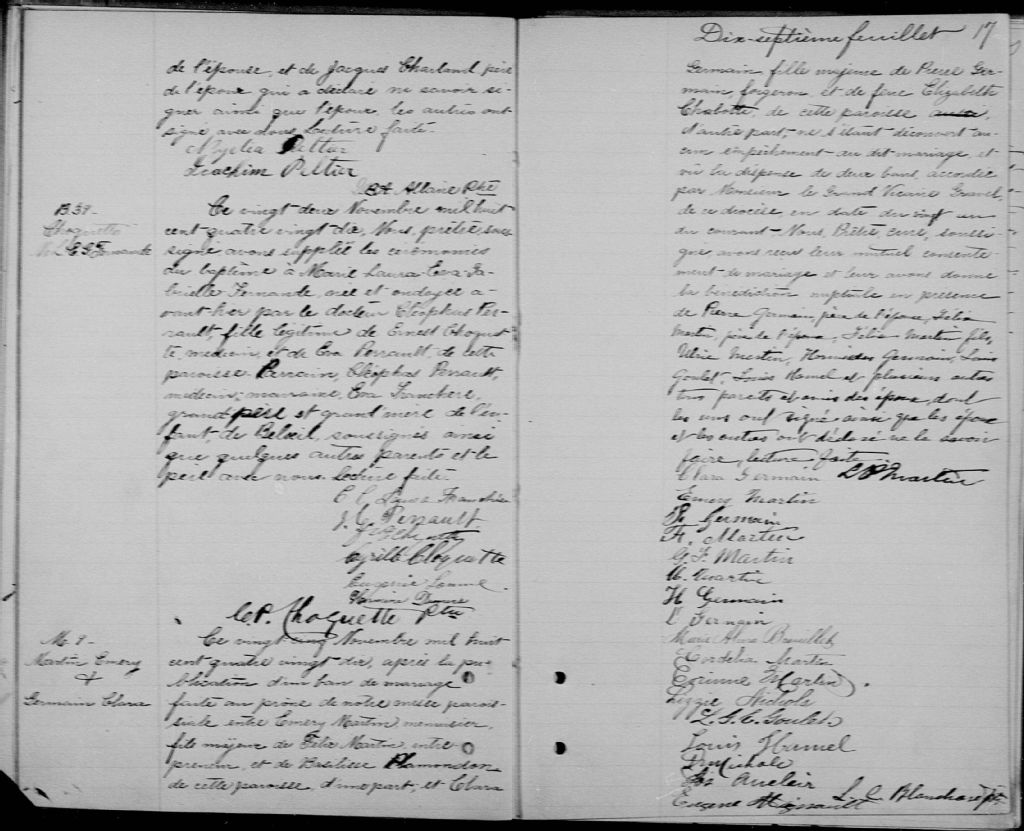 de l'épouse, et de Jacques Charland père
de l'époux qui a déclaré ne savoir si-
gner ainsi que l'époux, les autres ont
signé avec Nous. Lecture faite.
Peltier
Joachim Peltier
Allaire Ptre
B. 59-
Choquette
M. L. E. G. Fernande
Ce vingt deux Novembre mil huit
cent quatre vingt dix, Nous, prêtre, sous-
signé avons suppléé les cérémonies
du baptême à Marie Laura Eva Ga-
brielle Fernande, née et ondoyée a-
vant-hier par le docteur Cléophas Per-
rault, fille légitime de Ernest Choquet-
te, médecin, et de Eva Perrault, de cette
paroisse. Parrain, Cléophas Perrault,
médecin; marraine, Eva Franchère,
grand père et grand'mère de l'en-
fant, de Beloeil, soussignés ainsi
que quelques autres parents et le
père avec nous. Lecture faite.
Franchère
J. C. Perrault
Cyrille Choquette
Eugénie
C. P. Choquette Ptre
M. 8-
Martin Emery
&
Germain Clara
Ce vingt cinq Novembre mil huit
cent quatre vingt dix, après la pu-
blication d'un ban de mariage
faite au prône de notre messe parois-
siale entre Emery Martin menuisier,
fils majeur de Félix Martin, entre-
preneur, et de Basilisse Plamondon
de cette paroisse d'une part, et Clara
Dix-septième feuillet 17
Germain fille majeure de Pierre Ger-
main forgeron, et de feue Elizabeth
Chabotte, de cette paroisse aussi,
d'autre part, ne s'étant découvert au-
cun empêchement au dit mariage, et
vu la dispense de deux bans, accordée
par Monsieur le Grand Vicaire Gravel,
de ce diocèse, en date du vingt un
du courant - Nous, Prêtre curé, soussi-
gné, avons reçu leur mutuel consente-
ment de mariage et leur avons donné
la bénédiction nuptiale en présence
de Pierre Germain, père de l'épouse, Félix
Martin, père de l'époux, Félix Martin fils,
Ulric Martin, Hormidas Germain, Louis
Goulet, Louis Hamel et plusieurs autres
tous parents et amis des époux, dont
les uns ont signé ainsi que les époux
et les autres ont déclaré ne le savoir
faire, lecture faite.
Clara Germain L. P. Martin
Emery Martin
P. Germain
F. Martin
G. F. Martin
U. Martin
H Germain
Marie
Cordelia Martin
Corinne Martin
Lizzie Nichols
Goulet
Louis Hamel
D Nichols
Auclair
Eugène L. C. Blanchard Ptre